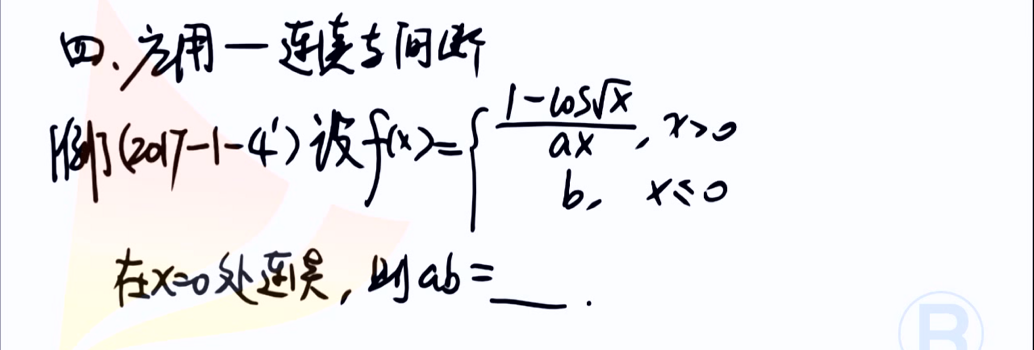 四、应用—连续与间断
[例](2017-1-4') 设f(x)={ (1-cos√x)/(ax), x>0
b, x≤0
在x=0处连续, 则ab=___.
B